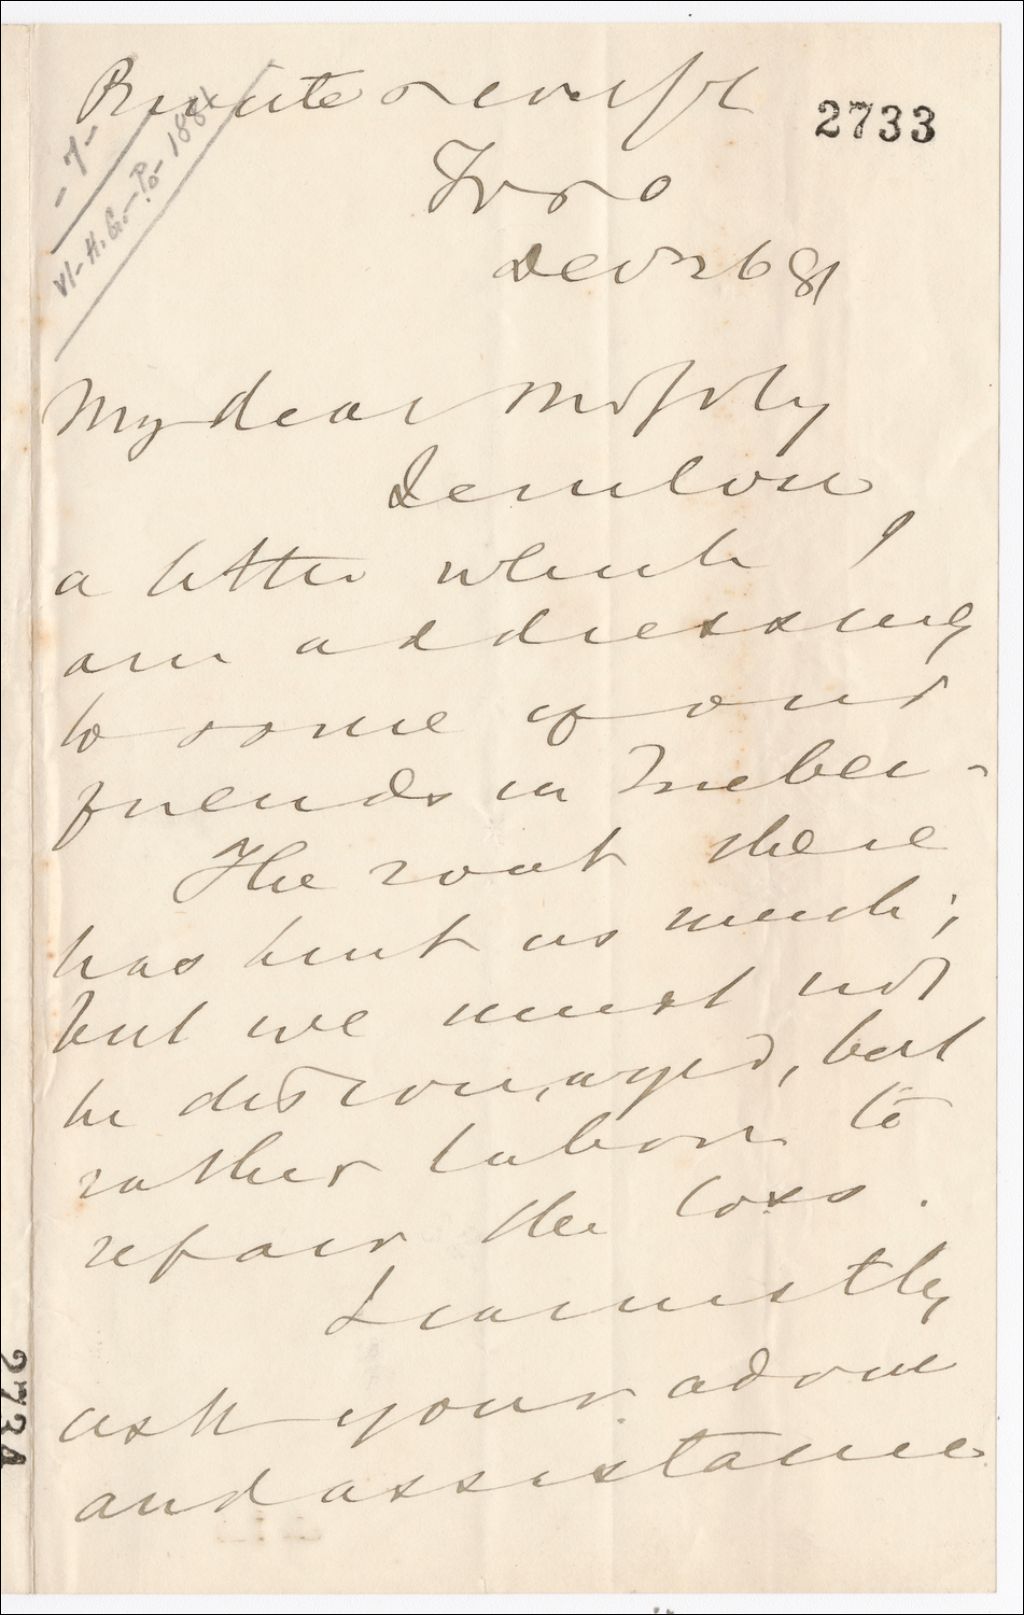 Private & confl
2733
-7-
W-H.G.-P.o- 1881
Toro
Dec 26 81
My dear Mr Joly
I enclose
a letter which I
am addressing
to some of our
friends in Quebec -
The rout there
has hurt us much;
but we must not
be discouraged, but
rather labour to
repair the loss.
I earnestly
ask your advice
and assistance
273